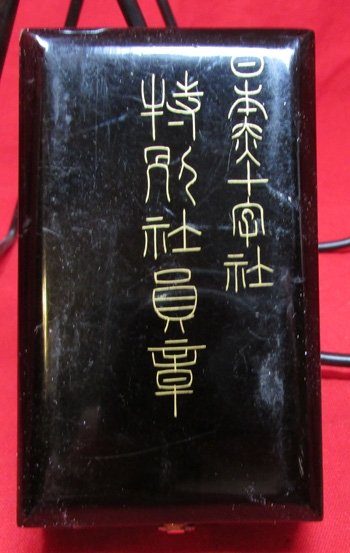 日本赤十字社
特別社員章